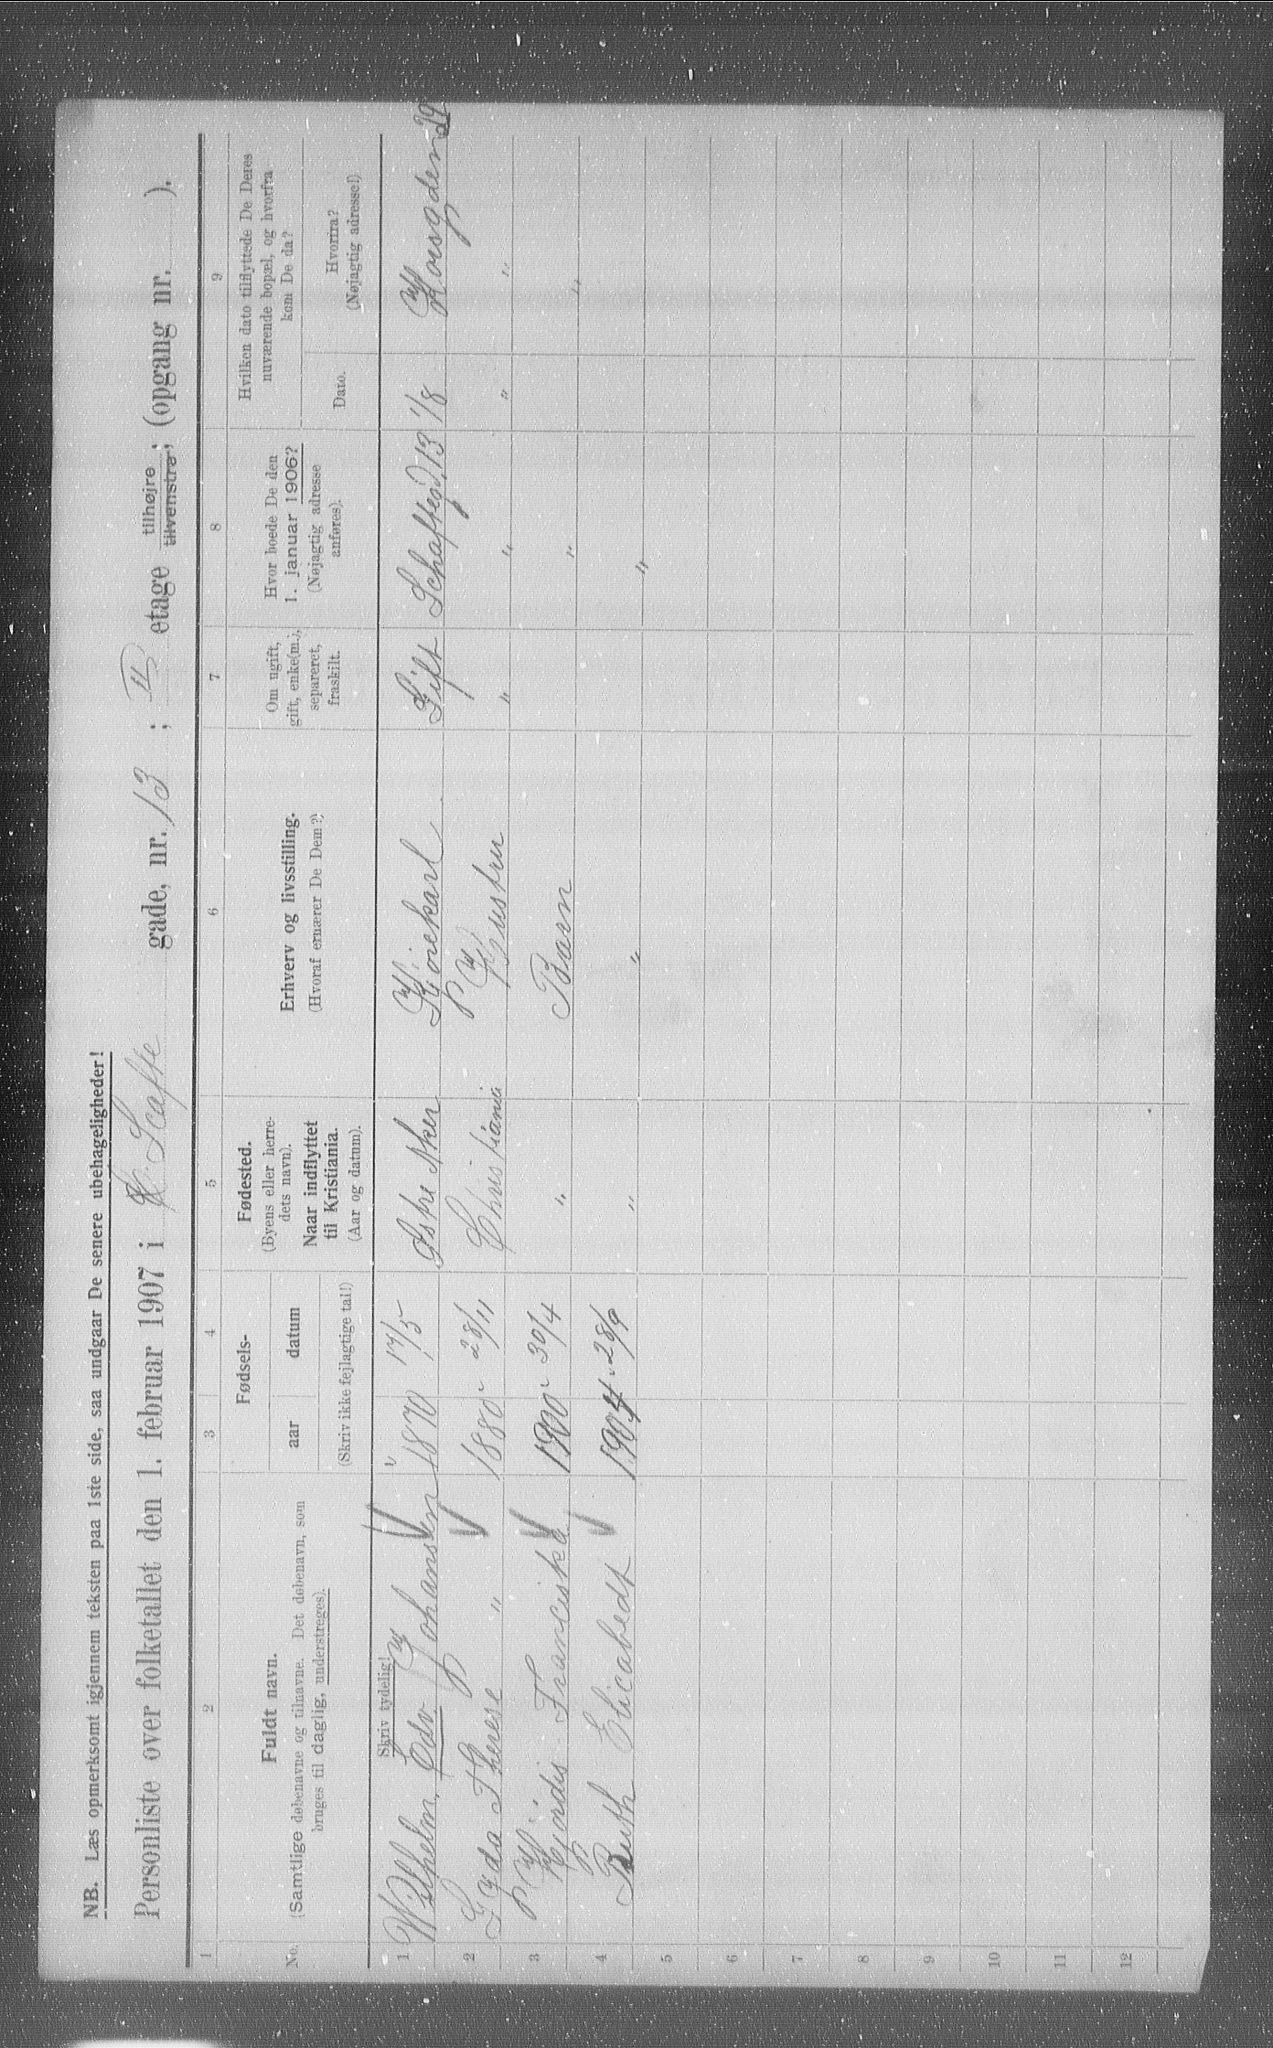 NB. Læs opmerksomt igjennem teksten paa 1ste side, saa undgaar De senere ubehageligheder!
Personliste over folketallet den 1. februar 1907 i Scaffe gade, nr. 13 ; II etage tilhøjre tilvenstre; (opgang nr. ).
1 2 3 4 5 6 7 8 9
No. Fuldt navn. (Samtlige døbenavne og tilnavne. Det døbenavn, som bruges til daglig, understreges).
Fødsels- aar datum (Skriv ikke fejlagtige tal!)
Fødested. (Byens eller herredets navn). Naar indflyttet til Kristiania. (Aar og datum).
Erhverv og livsstilling. (Hvoraf ernærer De Dem?)
Om ugift, gift, enke(m.), separeret, fraskilt.
Hvor boede De den 1. januar 1906? (Nøjagtig adresse anføres).
Hvilken dato tilflyttede De Deres nuværende bopæl, og hvorfra kom De da?
Dato. Hvorfra? (Nøjagtig adresse!)
Skriv tydelig!
1 Wilhelm, Edv Johansen 1870 17/5 Østre Aker Kjørekarl Gift Schaffegd 13 1/8
2 Therese " 1880 28/11 Christiania Hustru " " " "
3 Hjördis Franciska 1900 30/4 " Barn " "
4 Ruth Elicabedt 1904 28/9 " " "
5
6
7
8
9
10
11
12